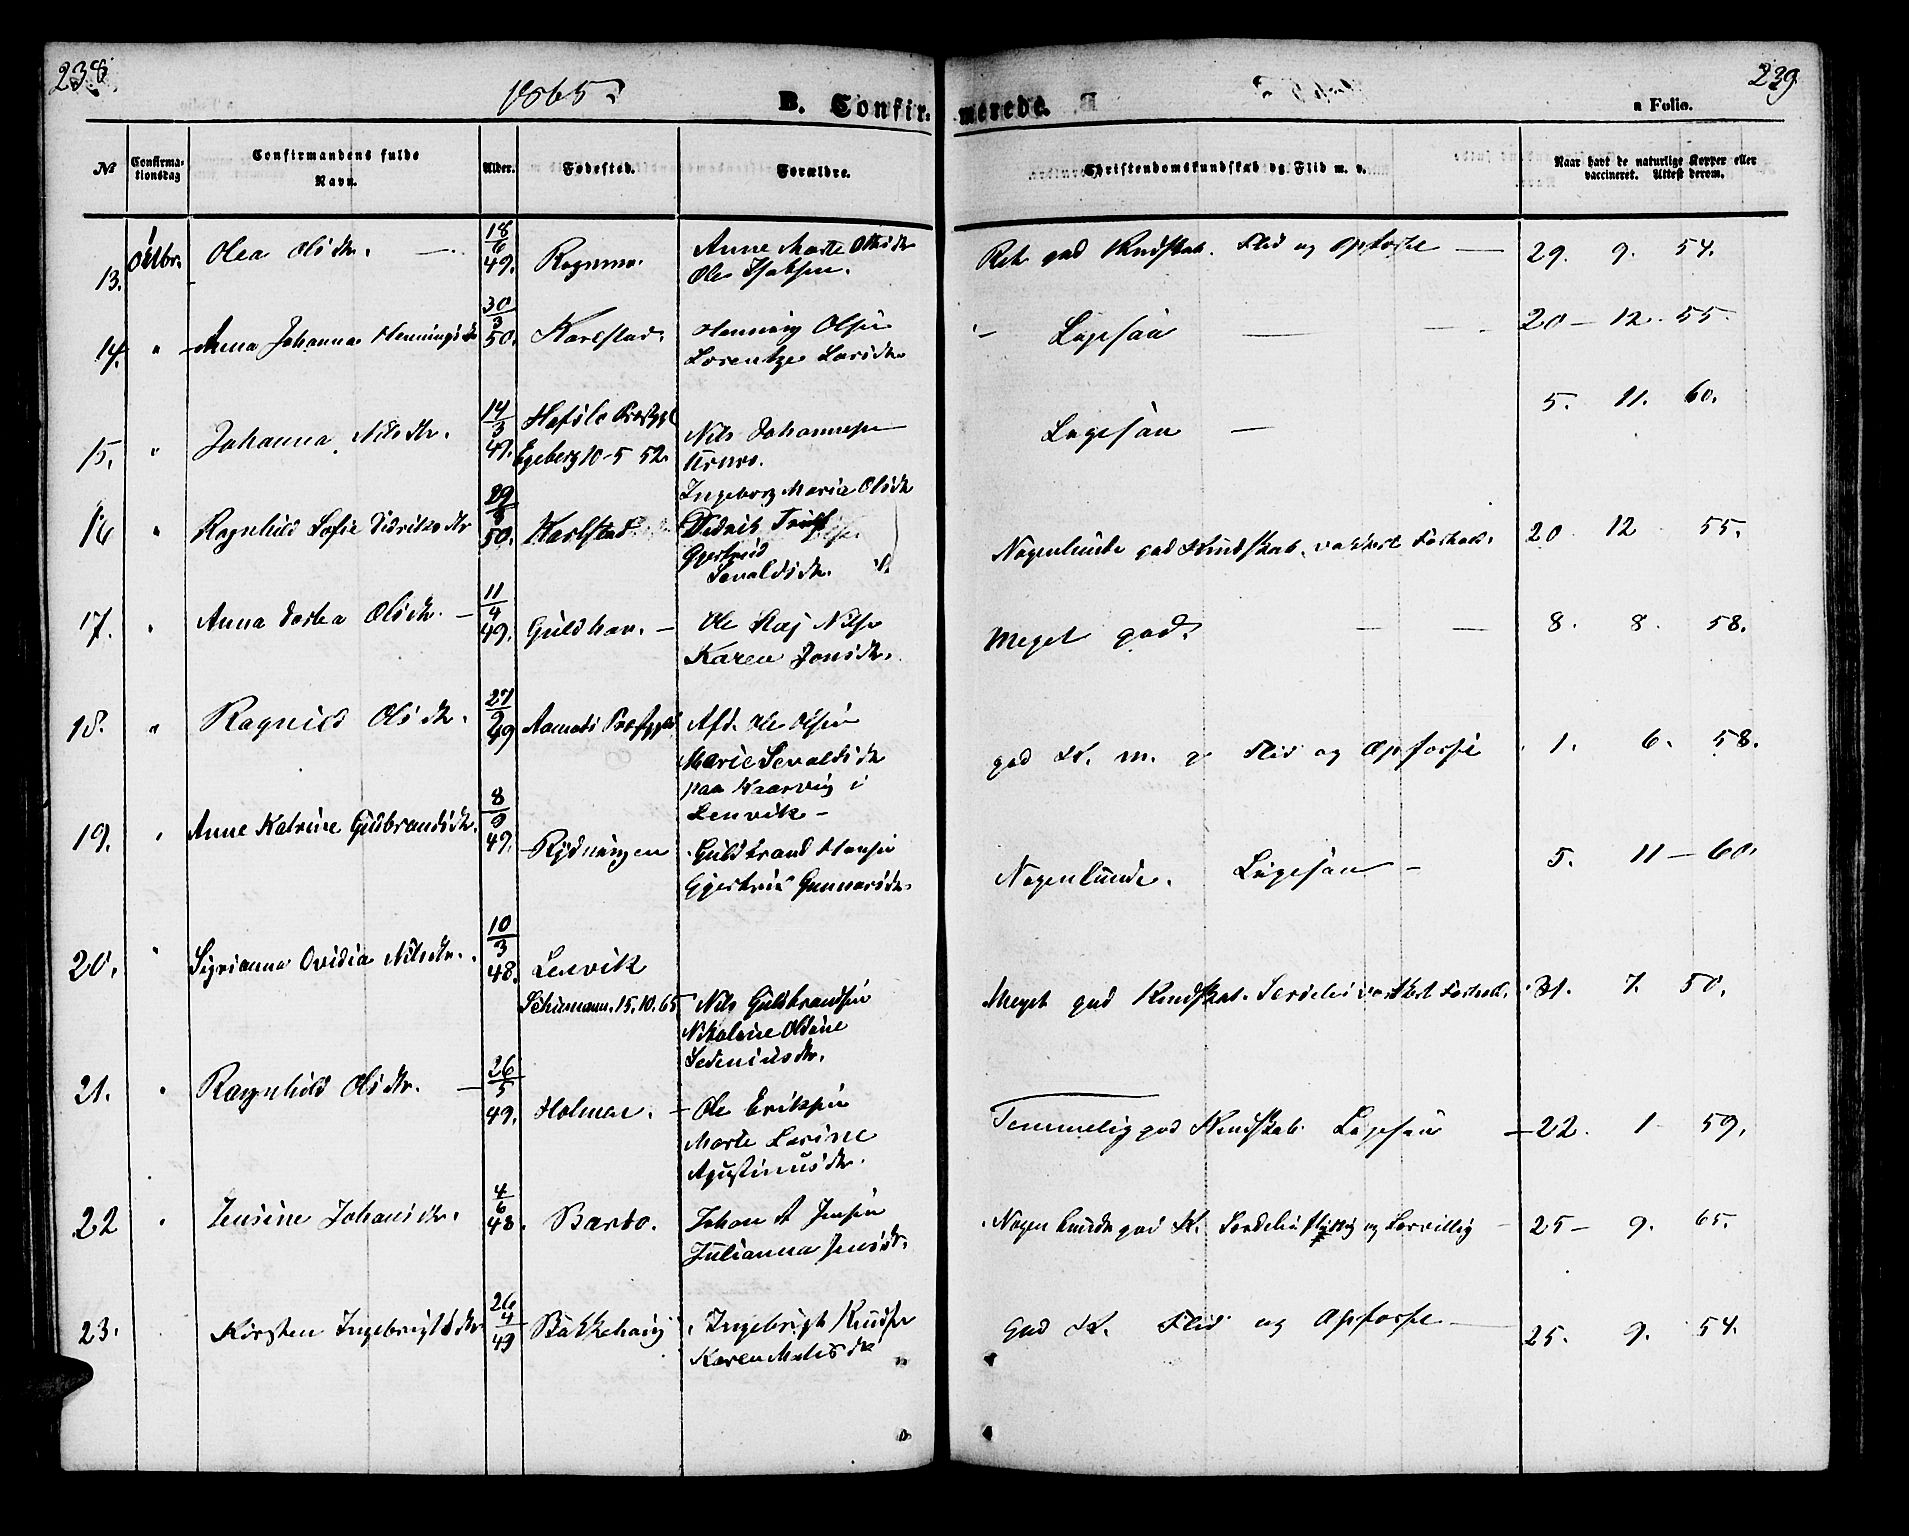 238
1865.
B. Confirmerede.
239
a Folio.
№ Confirmationsdag Confirmandens fulde Navn. Alder. Fødested. Forældre. Christendomskundskab og Flid m. v. Naar havt de naturlige Kopper eller vaccineret. Attest derom.
13. 1 Octbr. Olea Olsdtr. 18/6 49. Anne Marte Olsdtr Ole Isaksen. Ret god Kundskab. Flid og Opførsel 29. 9. 54.
14. " Anna Johanna Henningsdtr 30/3 50. Karlstad. Henning Olsen Lorentze Larsdtr. Ligesaa 20 – 12. 55.
15. " Johanna Nilsdtr. 14/3 49. Hafslo Præstgjel Egeberg 10-5 52. Nils Johannesen Ligesaa 5. 11. 60.
Ingeborg Maria Olsdtr
16 " Ragnhild Sofie Didriksdtr 50. Karlstad Didrik Gjertrud Sevaldsdtr. Nogenlunde god Kundskab. vakkert Forhold. 20 12 55.
17. " Anna Dortea Olsdtr. 11/4 49. Guldhav. Ole Nilsen Karen Jonsdtr. Meget god. 8. 8. 58.
18. " Ragnild Olsdtr. 27/ 49 Aamots Præstgjeld Afd. Ole Olsen Marie Sevaldsdtr paa Kaarvig i Lenvik god K. m. g Flid og Opførsel 1. 6. 58.
19. " Anne Katrine Guldbrandsdtr. 8/9 49. Rydningen Guldbrand Hansen Gjertrud Gunnarsdtr. Nogenlunde. Ligesaa 5. 11 – 60.
20. " Sigrianna Ovidia Nilsdtr. 10/3 48. Lenvik Schumann. 15. 10. 65 Nils Guldbrandsen Nikoline Oldine Sedeniusdtr. Meget god Kundskab. Særdeles vakkert Forhold. 31. 7. 50.
21. " Ragnhild Olsdtr. 26/5 49. Holmen. Ole Eriksen Marte Larine Agustinusdtr. Temmelig god Kundskab Ligesaa 22. 1 59.
22 " Jensine Johansdtr. 4/6 48. Bardo. Johan A Jensen Julianna Jensdtr. Nogenlunde god K. Særdeles flittig og Lærvillig 25 – 9. 65.
23. Kirsten Ingebrigtsdtr 26/4 49 Bakkehaug Ingebrigt Knudsen Karen Matisdtr God K. Flid og Opførsel 25. 9. 54.